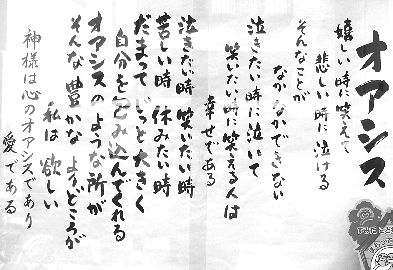 オアシス
嬉しい時に笑えて
悲しい時に泣ける
そんなことが
なかなかできない
泣きたい時に泣いて
笑いたい時に笑える人は
幸せである
泣きたい時 笑いたい時
苦しい時 休みたい時
だまって じっと大きく
自分を つつみ込んでくれる
オアシスのような所が
そんな豊かな よいところが
私は欲しい
神様は心のオアシスであり
愛である